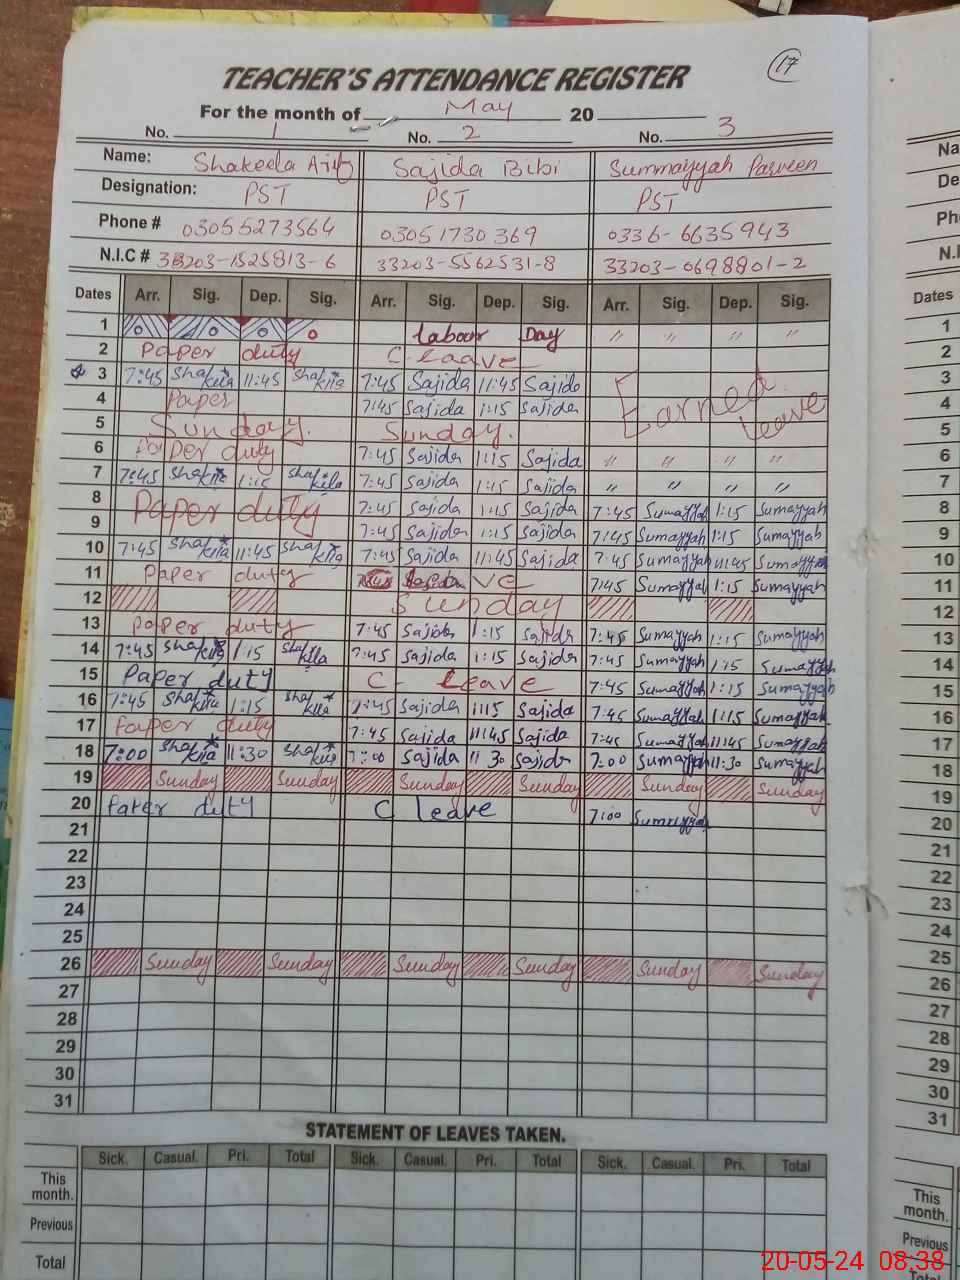 17
TEACHER'S ATTENDANCE REGISTER
For the month of May 20
No. 1 No. 2 No. 3
Name: Shakeela Arif Sajida Bibi Summayyah Parveen
Designation: PST PST PST
Phone # 03055273564 03051730369 0336-6635943
N.I.C # 33203-1525813-6 33203-5562531-8 33203-0698801-2
Dates Arr. Sig. Dep. Sig. Arr. Sig. Dep. Sig. Arr. Sig. Dep. Sig.
1 Labour Day " " " "
2 Paper duty C-leave
3 7:45 Shakila 11:45 Shakila 7:45 Sajida 11:45 Sajida Earned
4 Paper 7:45 Sajida 1:15 Sajida Leave
5 Sunday. Sunday.
6 Paper duty 7:45 Sajida 1:15 Sajida " " " "
7 7:45 Shakila 1:15 Shakila 7:45 Sajida 1:15 Sajida " " " "
8 Paper duty 7:45 Sajida 1:15 Sajida 7:45 Sumayyah 1:15 Sumayyah
9 7:45 Sajida 1:15 Sajida 7:45 Sumayyah 1:15 Sumayyah
10 7:45 Shakila 11:45 Shakila 7:45 Sajida 11:45 Sajida 7:45 Sumayyah 11:45 Sumayyah
11 Paper duty 7:45 Sumayyah 1:15 Sumayyah
12 Sunday
13 Paper duty 7:45 Sajida 1:15 Sajida 7:45 Sumayyah 1:15 Sumayyah
14 7:45 Shakila 1:15 Shakila 7:45 Sajida 1:15 Sajida 7:45 Sumayyah 1:15 Sumayyah
15 Paper duty C- Leave 7:45 Sumayyah 1:15 Sumayyah
16 7:45 Shakila 1:15 Shakila 7:45 Sajida 1:15 Sajida 7:45 Sumayyah 1:15 Sumayyah
17 Paper duty 7:45 Sajida 11:45 Sajida 7:45 Sumayyah 11:45 Sumayyah
18 7:00 Shakila 11:30 Shakila 7:00 Sajida 11 30 Sajida 7:00 Sumayyah 11:30 Sumayyah
19 Sunday Sunday Sunday Sunday Sunday Sunday
20 Paper duty C leave 7:00 Sumayyah
21
22
23
24
25
26 Sunday Sunday Sunday Sunday Sunday Sunday
27
28
29
30
31
STATEMENT OF LEAVES TAKEN.
Sick. Casual. Pri. Total Sick. Casual. Pri. Total Sick. Casual. Pri. Total
This month.
Previous
Total
Na
De
Ph
N.I
Dates
1
2
3
4
5
6
7
8
9
10
11
12
13
14
15
16
17
18
19
20
21
22
23
24
25
26
27
28
29
30
31
This month.
Previous
Total
20-05-24 08:38